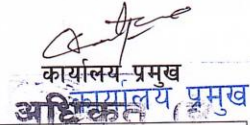 कार्यालय प्रमुख
कार्यालय प्रमुख
अधिकृत